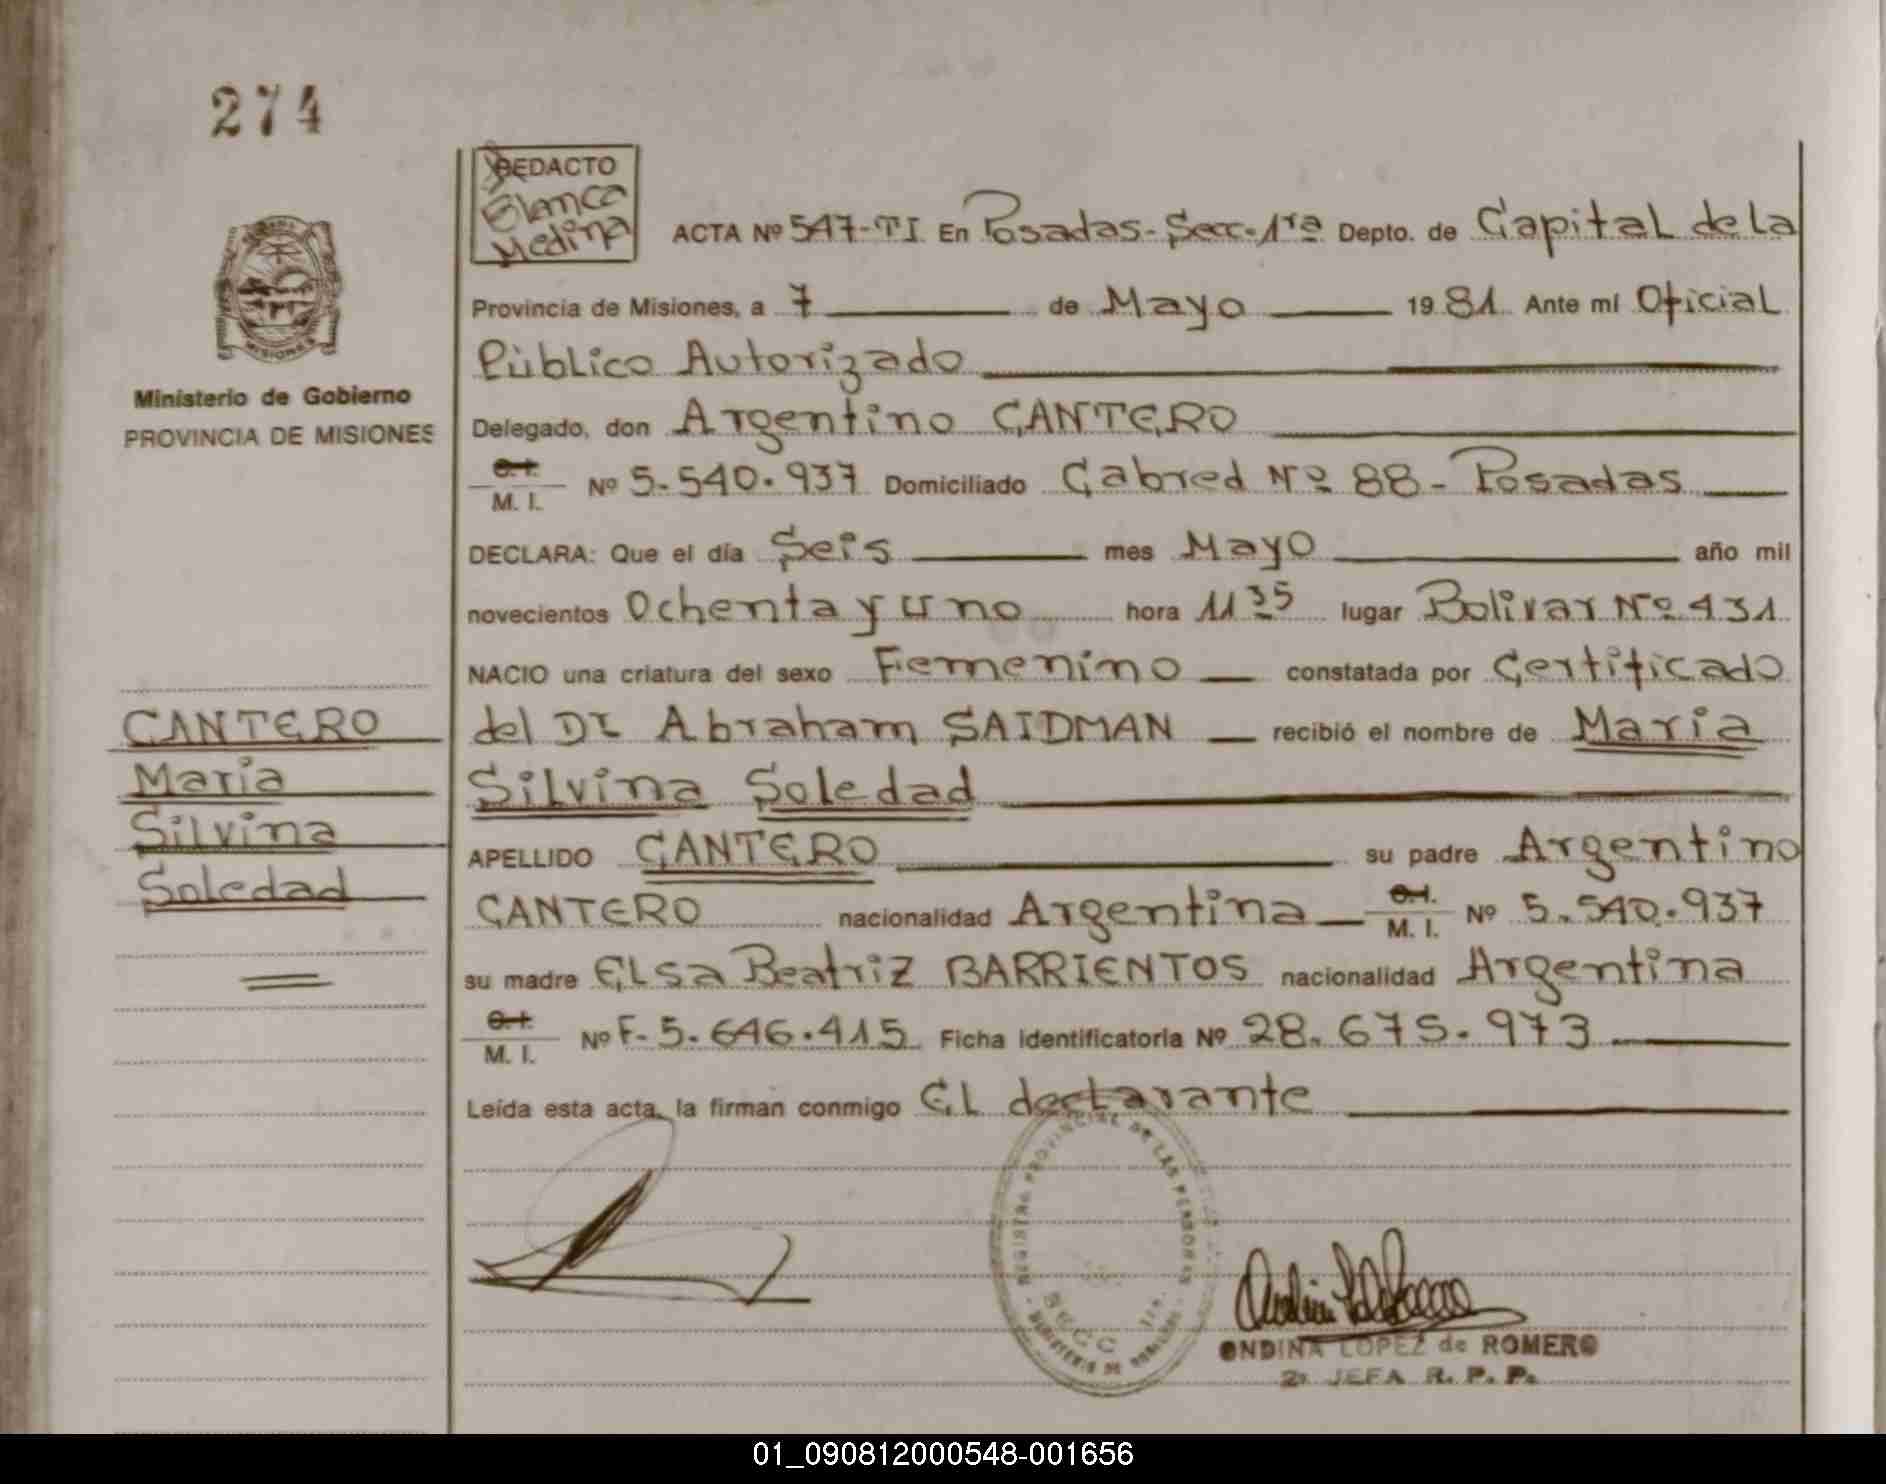 274
REDACTO
Blanca
Medina
ACTA Nº 547-TI En Posadas-Secc-1ra Depto. de Capital de la
Provincia de Misiones, a 7 de Mayo 1981 Ante mí Oficial
Público Autorizado
Ministerio de Gobierno
PROVINCIA DE MISIONES
Delegado, don Argentino CANTERO
C.I.
M. I. Nº 5.540.937 Domiciliado Cabred Nº 88-Posadas
DECLARA: Que el día Seis mes Mayo año mil
novecientos Ochenta y uno hora 11 35 lugar Bolivar Nº 431
NACIO una criatura del sexo Femenino constatada por Certificado
del Dr Abraham SAIDMAN recibió el nombre de Maria
Silvina Soledad
APELLIDO CANTERO su padre Argentino
CANTERO nacionalidad Argentina C.I. M. I. Nº 5.540.937
su madre Elsa Beatriz BARRIENTOS nacionalidad Argentina
C.I.
M. I. Nº F-5.646.415 Ficha identificatoria Nº 28.675.973
Leída esta acta, la firman conmigo El declarante
CANTERO
Maria
Silvina
Soledad
REGISTRO PROVINCIAL DE LAS PERSONAS
SECC 1ra.
ONDINA LOPEZ de ROMERO
2ª JEFA R. P. P.
01_090812000548-001656